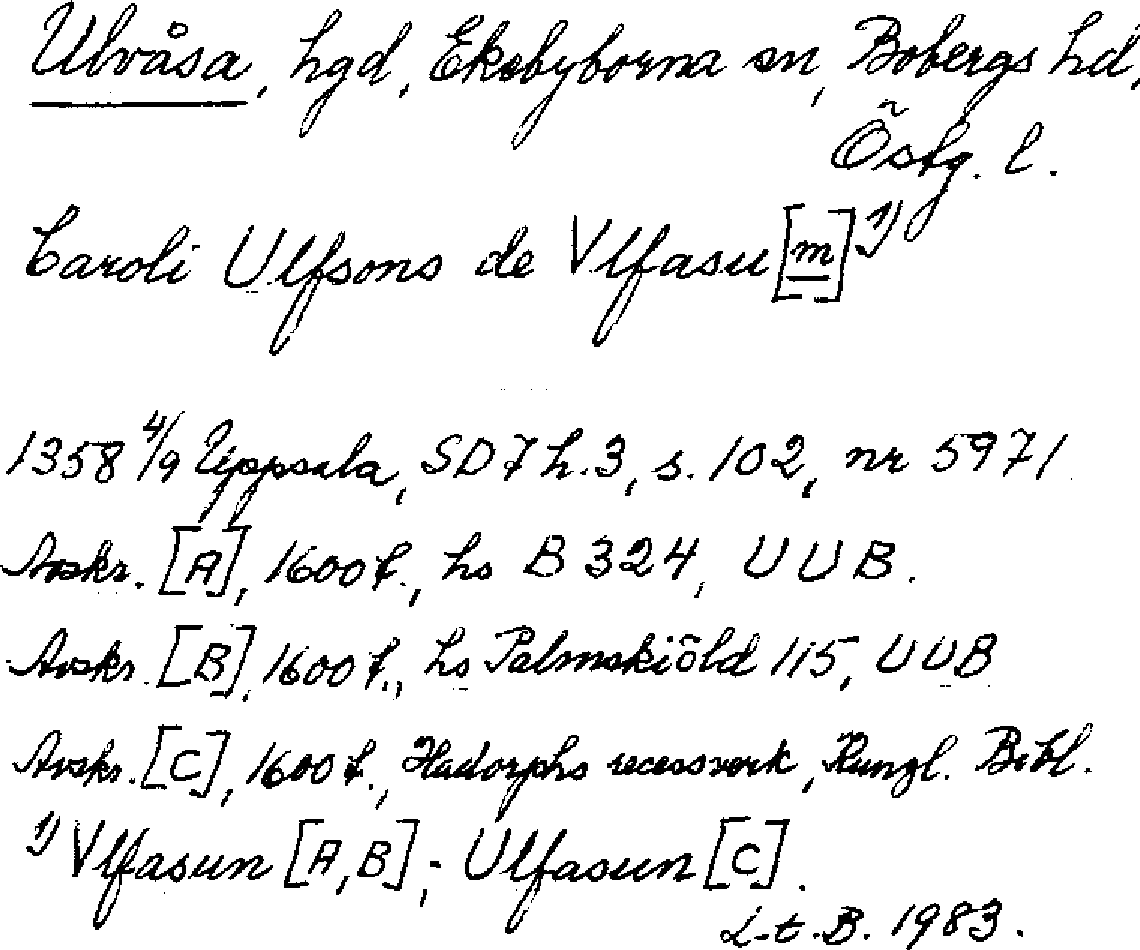 Ulvåsa, hgd, Ekebyborna sn, Bobergs hd,
Östg. l.
Caroli Ulfsons de Vlfasu[m]1)
1358 4/9 Uppsala, SD 7 h. 3, s. 102, nr 5971
Avskr. [A], 1600 t., hs B 324, UUB.
Avskr. [B], 1600 t., hs Palmskiöld 115, UUB
Avskr. [C], 1600 t., Hadorphs recessverk, Kungl. Bibl.
1) Vlfasun [A, B]; Ulfasun [C].
L.t.B. 1983.